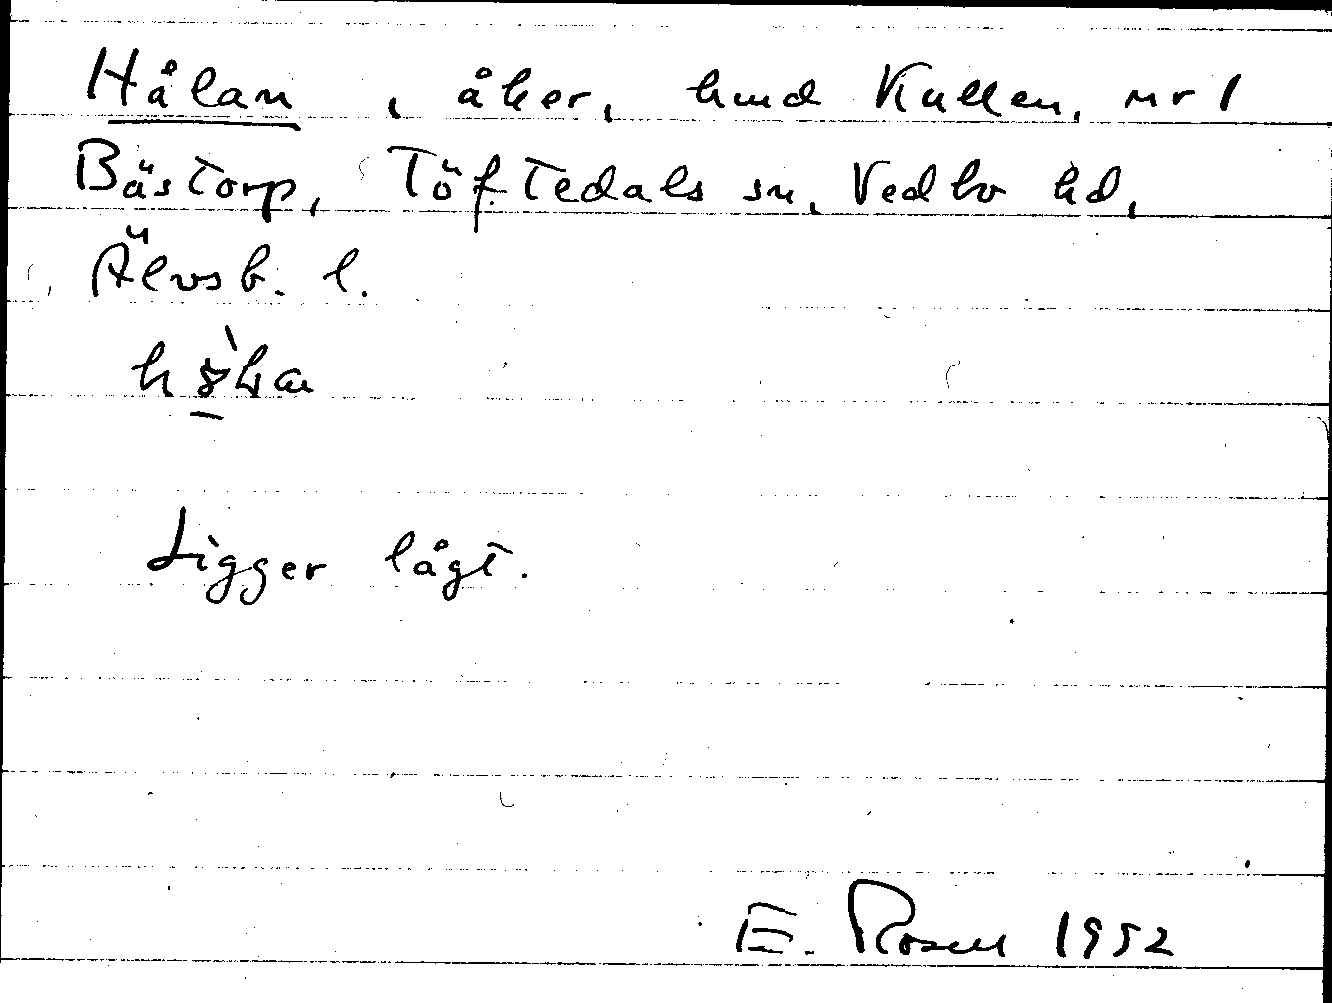 Hålan, åker, hmd Kullen, nr 1
Bästorp, Töftedals sn, Vedbo hd,
Älvsb. l.
Ligger lågt.
E. Rosen 1952